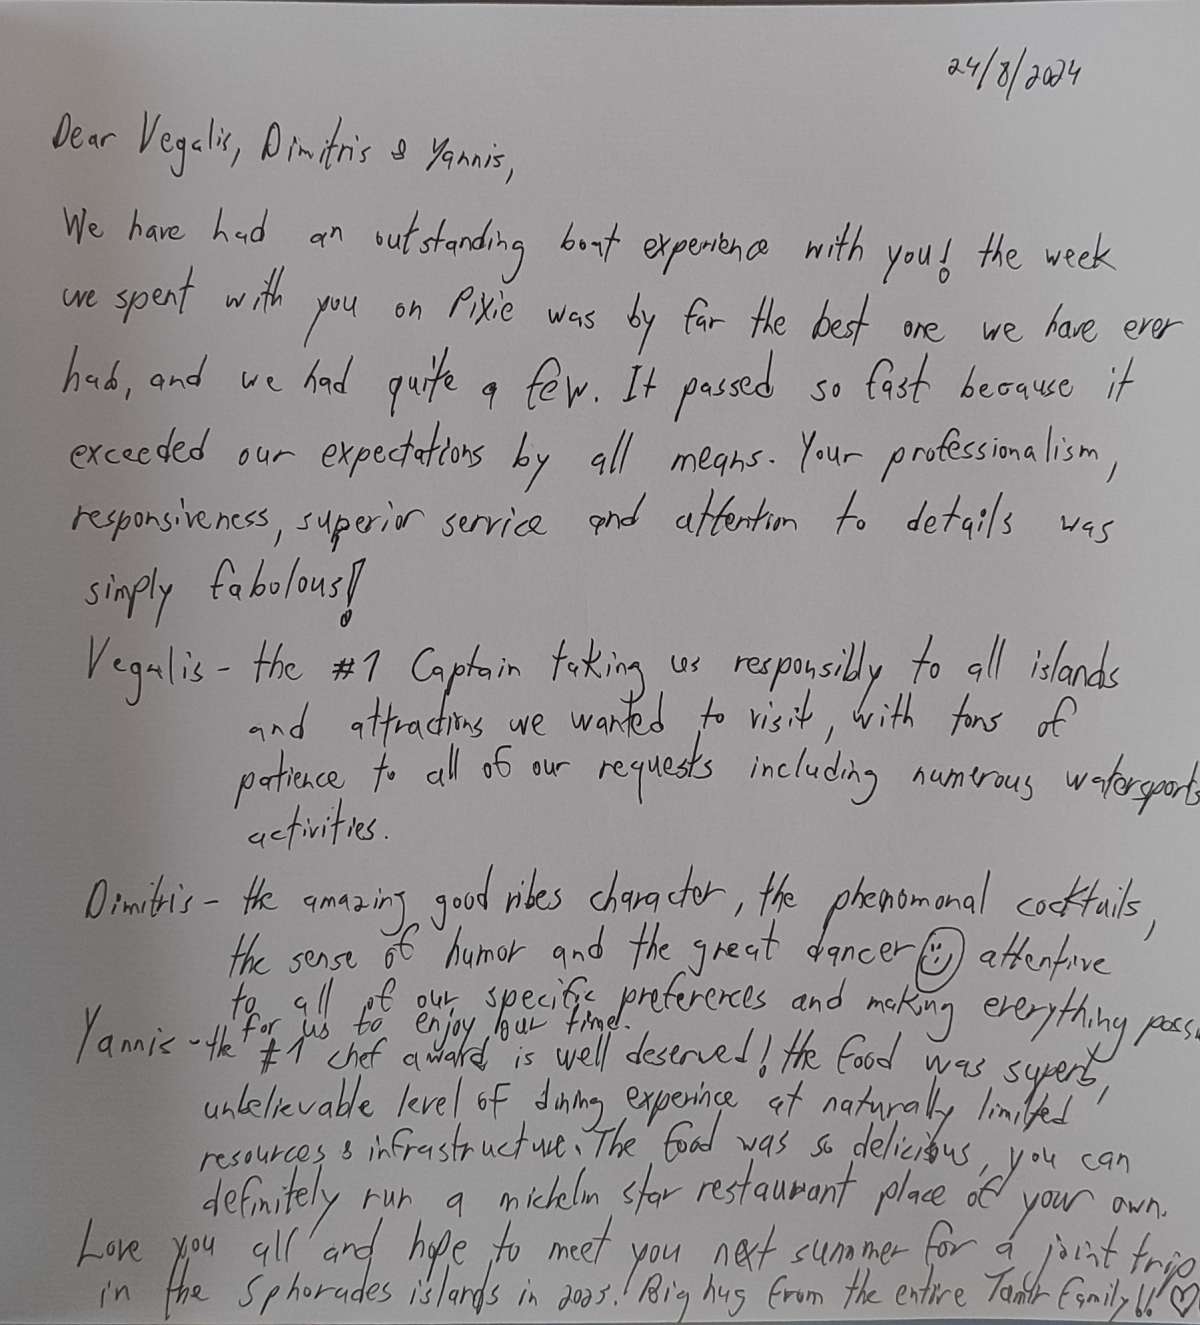 24/8/2024
Dear Vegalis, Dimitris & Yannis,
We have had an outstanding boat experience with you! the week
we spent with you on Pixie was by far the best one we have ever
had, and we had quite a few. It passed so fast because it
exceeded our expectations by all means. Your professionalism,
responsiveness, superior service and attention to details was
simply fabolous!
Vegalis - the #1 Captain taking us responsibly to all islands
and attractions we wanted to visit, with tons of
patience to all of our requests including numerous watersports
activities.
Dimitris - the amazing good vibes character, the phenomonal cocktails,
the sense of humor and the great dancer ☺ attentive
to all of our specific preferences and making everything poss
for us to enjoy our time.
Yannis - the #1 chef award is well deserved! the food was superb,
unbelievable level of dining experince at naturally limited
resources & infrastructure. The food was so delicious, you can
definitely run a michelin star restaurant place of your own.
Love you all and hope to meet you next summer for a joint trip
in the Sphorades islands in 2025! Big hug from the entire family!! ♡